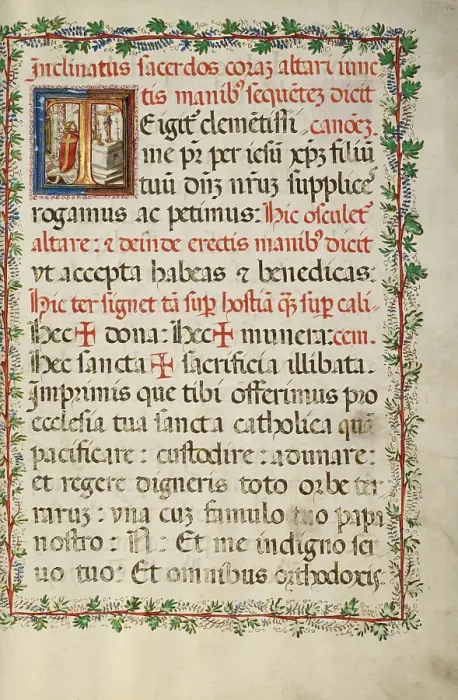 Inclinatus sacerdos coraʒ altari iunc-
tis manibꝰ sequēteʒ dicit
T E igiť clemētissi canōeʒ.
me pr̄ per iesū xp̄ʒ filiū
tuū dn̄ʒ nr̄uʒ supplice
rogamus ac petimus: Hic osculet̄
altare: ⁊ deinde erectis manibꝰ dicit
vt accepta habeas ⁊ benedicas:
Hic ter signet tā sup̄ hostiā q̄ʒ sup̄ cali-
Hec ✠ dona: Hec ✠ munera: cem.
Hec sancta ✠ sacrificia illibata.
Imprimis que tibi offerimus pro
ecclesia tua sancta catholica quā
pacificare: custodire: adunare:
et regere digneris toto orbe ter
raruʒ: vna cuʒ famulo tuo papa
nostro: N: Et me indigno ser
uo tuo: Et omnibus orthodoxis